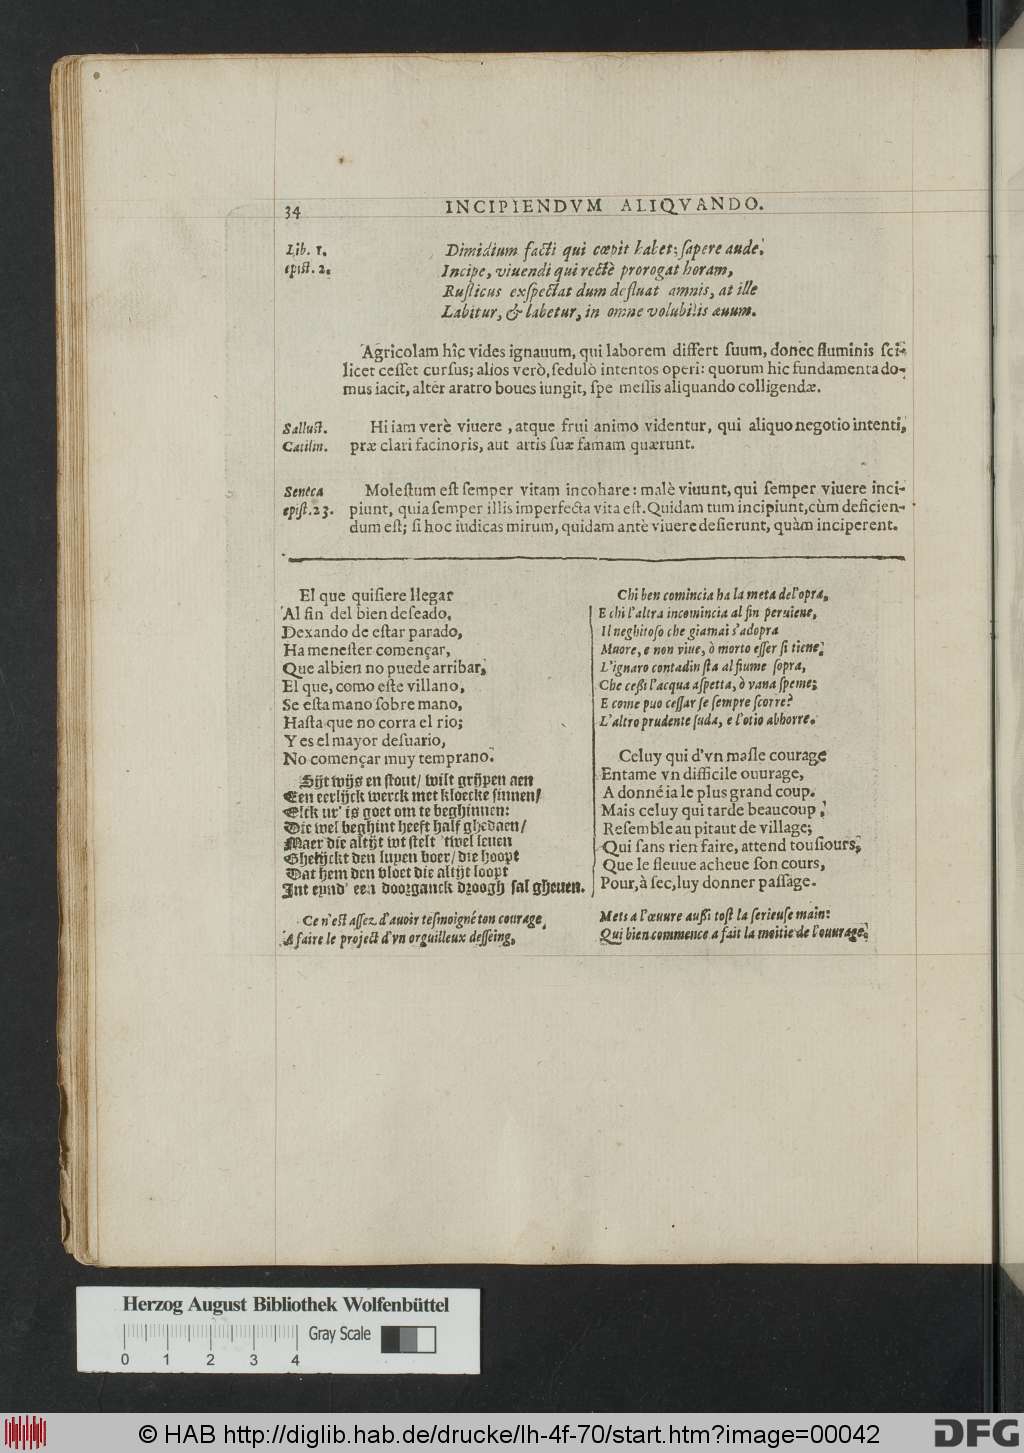 34
INCIPIENDVM ALIQVANDO.
Lib. 1.
epist. 2.
Dimidium facti qui cœpit habet; ſapere aude.
Incipe, viuendi qui rectè prorogat horam,
Ruſticus exſpectat dum defluat amnis, at ille
Labitur, & labetur, in omne volubilis æuum.
Agricolam hîc vides ignauum, qui laborem differt ſuum, donec fluminis ſci-
licet ceſſet curſus; alios verò, ſedulò intentos operi: quorum hic fundamenta do-
mus iacit, alter aratro boues iungit, ſpe meſſis aliquando colligendæ.
Salluſt.
Catilin.
Hi iam verè viuere, atque frui animo videntur, qui aliquo negotio intenti,
præ clari facinoris, aut artis ſuæ famam quærunt.
Seneca
epiſt. 23.
Moleſtum eſt ſemper vitam incohare: malè viuunt, qui ſemper viuere inci-
piunt, quia ſemper illis imperfecta vita eſt. Quidam tum incipiunt, cùm deficien-
dum eſt; ſi hoc iudicas mirum, quidam antè viuere deſierunt, quàm inciperent.
El que quiſiere llegar
Al fin del bien deſeado,
Dexando de eſtar parado,
Ha meneſter començar,
Que al bien no puede arribar,
El que, como eſte villano,
Se eſta mano ſobre mano,
Haſta que no corra el rio;
Y es el mayor deſuario,
No començar muy temprano.
Sijt wijs en ſtout/ wilt grijpen aen
Een eerlijck werck met kloecke ſinnen/
Elck ur' is goet om te beghinnen:
Die wel beghint heeft half ghedaen/
Maer die altijt wt ſtelt 'twel leuen
Ghelijckt den luyen boer/ die hoopt
Dat hem den vloet die altijt loopt
Int eynd' een doorganck droogh ſal gheuen.
Chi ben comincia ha la meta del'opra,
E chi l'altra incomincia al fin peruiene,
Il neghitoſo che giamai s'adopra
Muore, e non viue, ò morto eſſer ſi tiene.
L'ignaro contadin ſta al fiume ſopra,
Che ceßi l'acqua aſpetta, ò vana ſpeme;
E come puo ceſſar ſe ſempre ſcorre?
L'altro prudente ſuda, e l'otio abhorre.
Celuy qui d'vn maſle courage
Entame vn difficile ouurage,
A donné ia le plus grand coup.
Mais celuy qui tarde beaucoup,
Reſemble au pitaut de village;
Qui ſans rien faire, attend touſiours,
Que le fleuue acheue ſon cours,
Pour, à ſec, luy donner paſſage.
Ce n'eſt aſſez d'auoir teſmoigné ton courage,
A faire le project d'vn orguilleux deſſeing,
Mets a l'œuure außi toſt la ſerieuſe main:
Qui bien commence a fait la moitie de l'ouurage.
Herzog August Bibliothek Wolfenbüttel
Gray Scale
0 1 2 3 4
© HAB http://diglib.hab.de/drucke/lh-4f-70/start.htm?image=00042
DFG